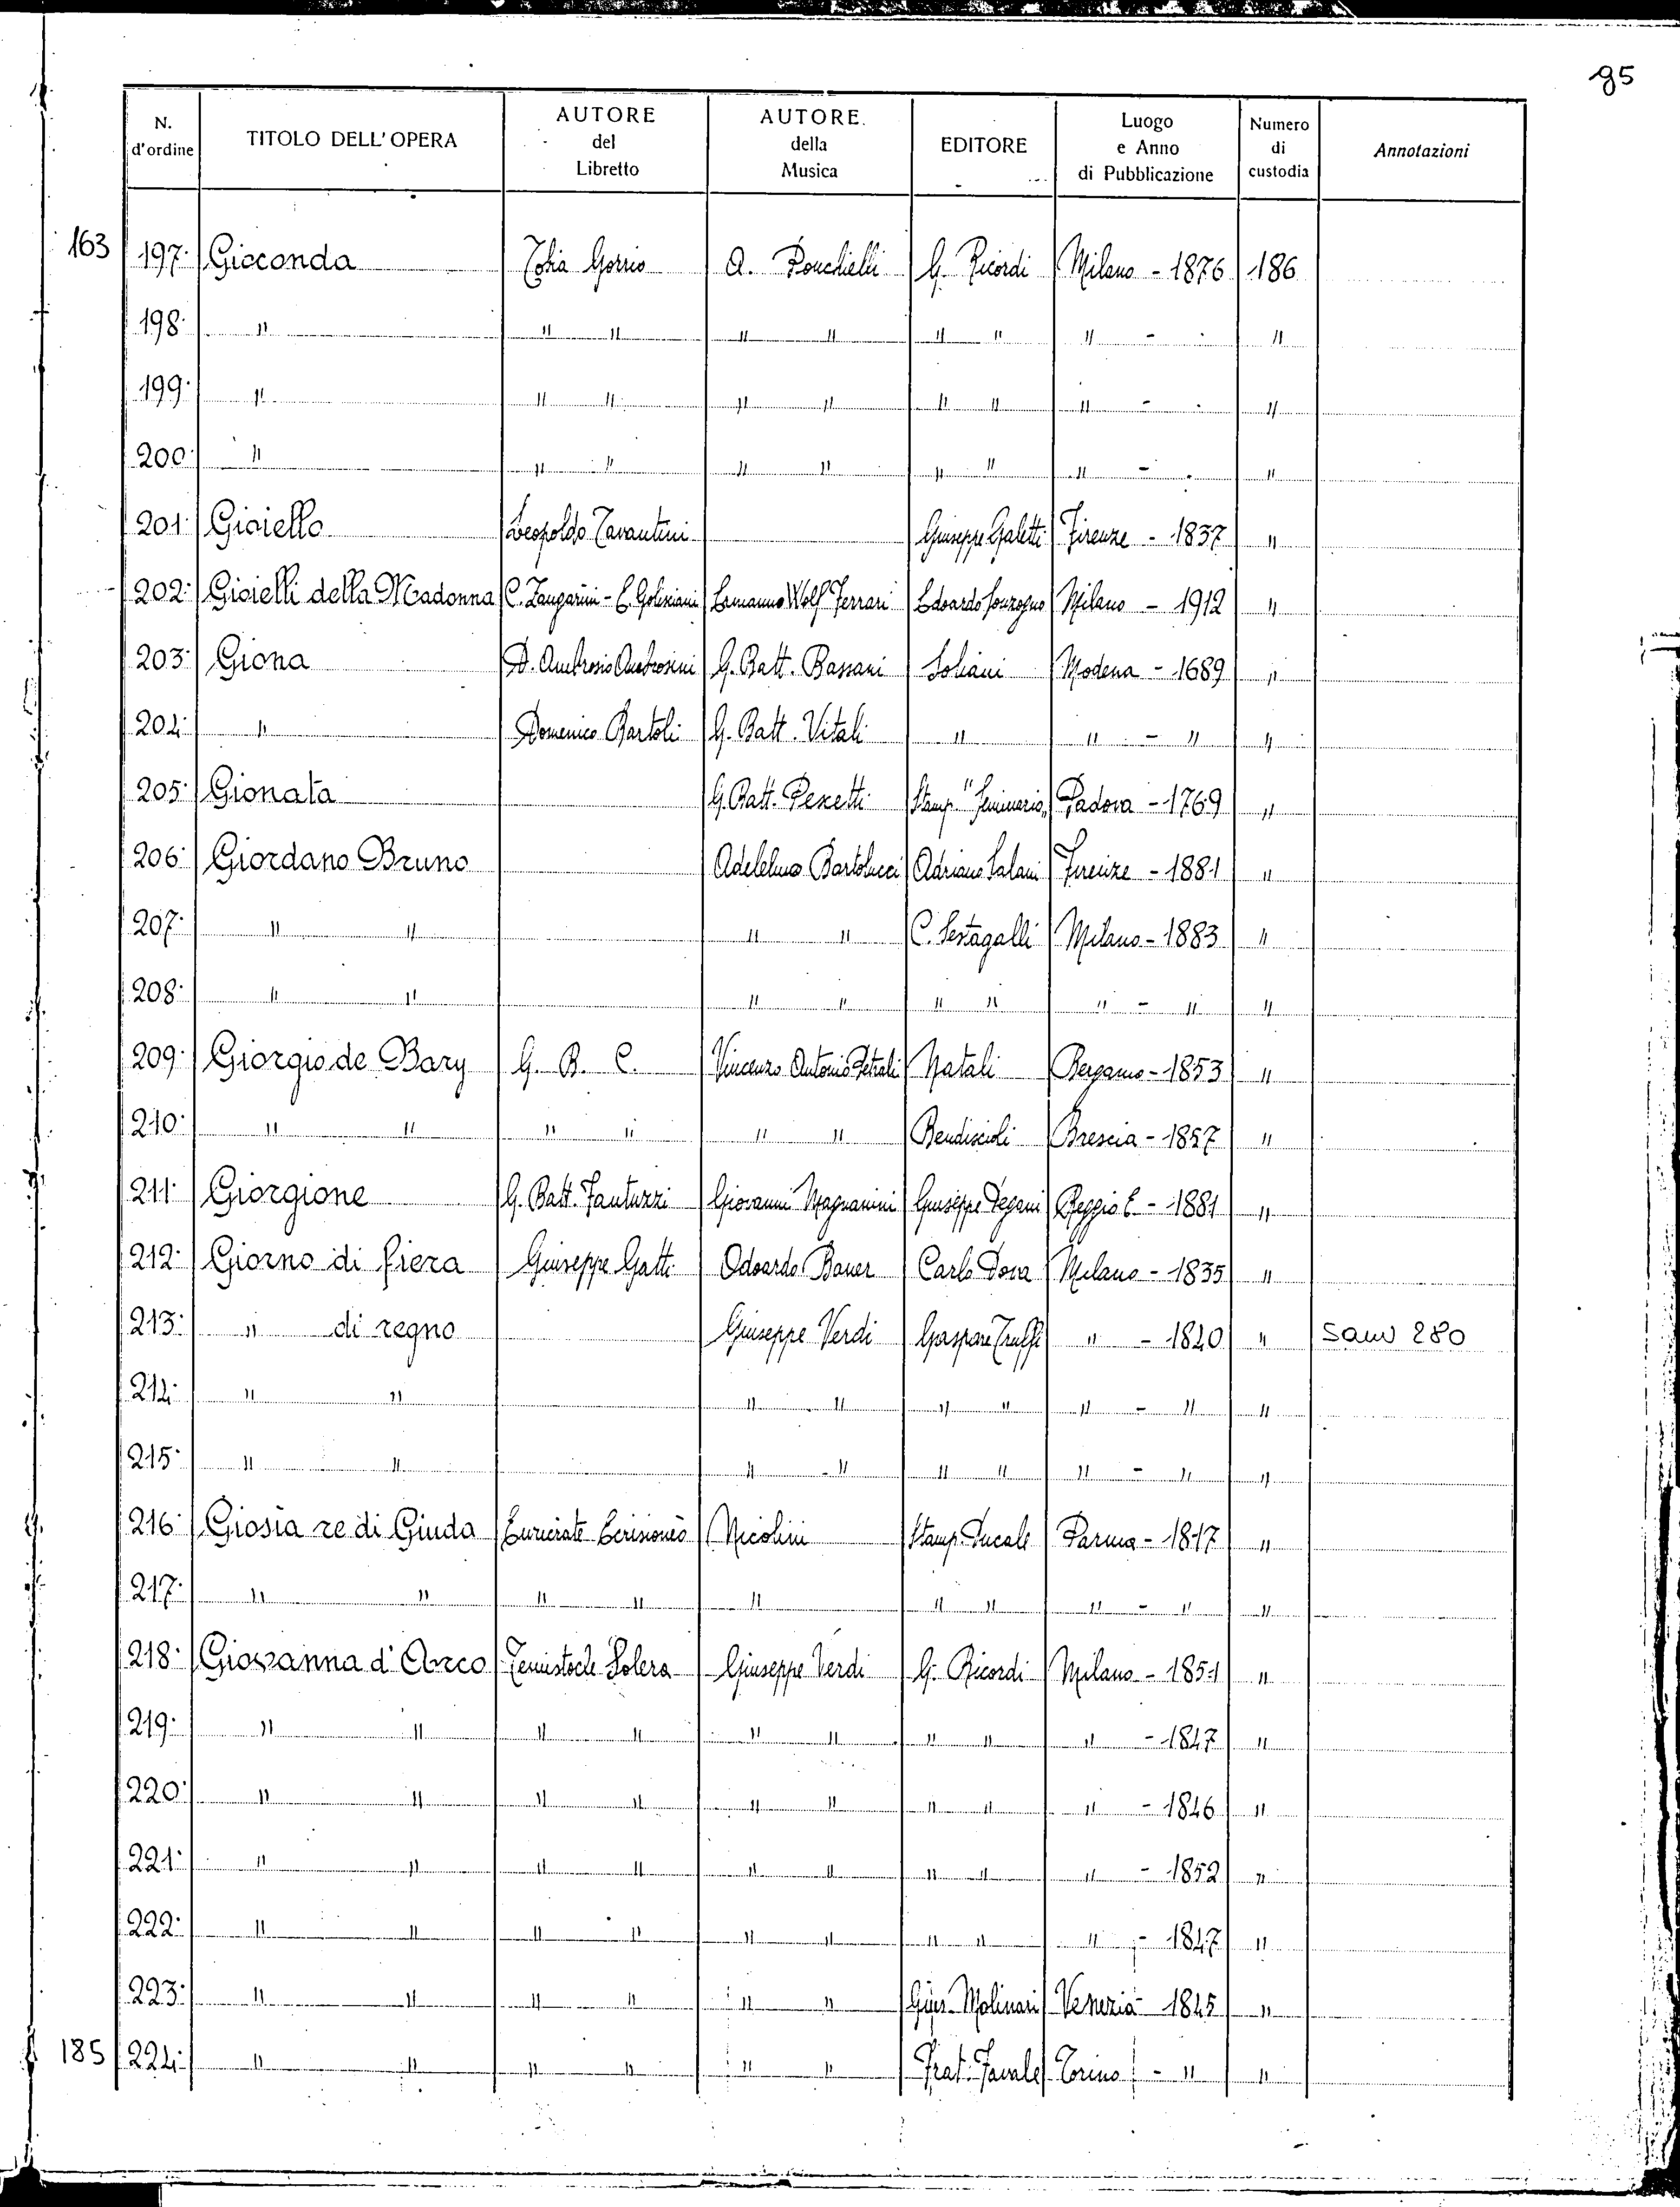 95
N. d'ordine | TITOLO DELL'OPERA | AUTORE del Libretto | AUTORE. della Musica | EDITORE | Luogo e Anno di Pubblicazione | Numero di custodia | Annotazioni
163 | 197· | Gioconda | Tobia Gorrio | A. Ponchielli | G. Ricordi | Milano - 1876 | 186
198· | " | " " | " " | " " | " - | "
199· | " | " " | " " | " " | " - | "
200· | " | " " | " " | " " | " - | "
201· | Gioiello | Leopoldo Tarantini | | Giuseppe Galetti | Firenze - 1837 | "
202· | Gioielli della Madonna | C. Zangarini - E. Golisciani | Ermanno Wolf Ferrari | Edoardo Sonzogno | Milano - 1912 | "
203· | Giona | D. Ambrosio Ambrosini | G. Batt. Bassani | Soliani | Modena - 1689 | "
204· | " | Domenico Bartoli | G. Batt. Vitali | " | " - " | "
205· | Gionata | | G. Batt. Pexetti | Stamp. "Seminario" | Padova - 1769 | "
206· | Giordano Bruno | | Adelelmo Bartolucci | Adriano Salani | Firenze - 1881 | "
207· | " " | | " " | C. Sestagalli | Milano - 1883 | "
208· | " " | | " " | " " | " - " | "
209· | Giorgio de Bary | G. B. C. | Vincenzo Antonio Petrali | Natali | Bergamo - 1853 | "
210· | " " | " " | " " | Bendiscioli | Brescia - 1857 | "
211· | Giorgione | G. Batt. Fantuzzi | Giovanni Magnanini | Giuseppe Degani | Reggio E - 1881 | "
212· | Giorno di fiera | Giuseppe Gatti | Odoardo Bauer | Carlo Dova | Milano - 1835 | "
213· | " di regno | | Giuseppe Verdi | Gaspare Truffi | " - 1840 | " | Saw 280
214· | " " | | " " | " " | " - " | "
215· | " " | | " " | " " | " - " | "
216· | Giosia re di Giuda | | Nicolini | Stamp. Ducale | Parma - 1817 | "
217· | " " | " " | " | " " | " - " | "
218· | Giovanna d'Arco | Temistocle Solera | Giuseppe Verdi | G. Ricordi | Milano - 1851 | "
219· | " " | " " | " " | " " | " - 1847 | "
220· | " " | " " | " " | " " | " - 1846 | "
221· | " " | " " | " " | " " | " - 1852 | "
222· | " " | " " | " " | " " | " - 1847 | "
223· | " " | " " | " " | Gius. Molinari | Venezia - 1845 | "
185 | 224· | " " | " " | " " | Frat. Favale | Torino - " | "